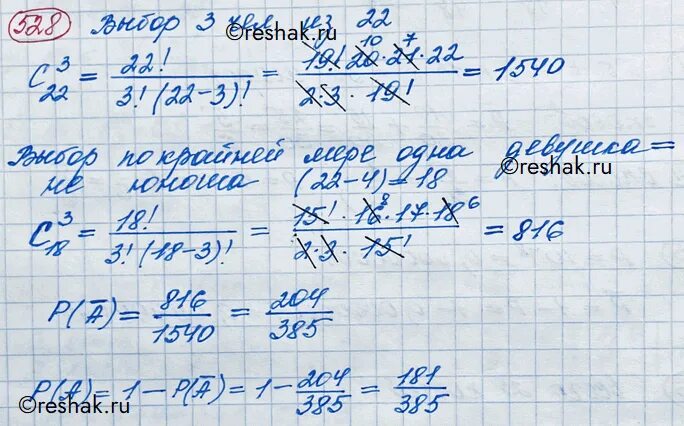 528 Выбор 3 чел из 22
©reshak.ru
C₂₂³ = 22! / 3! (22-3)! = 19! · 20 · 21 · 22 / 2·3 · 19! = 1540
10 7
Выбор по крайней мере одна девушка =
©reshak.ru
не юноша (22-4) = 18
C₁₈³ = 18! / 3! (18-3)! = 15! · 16 · 17 · 18 / 2·3 · 15! = 816
8 6
P(A̅) = 816 / 1540 = 204 / 385
P(A) = 1 - P(A̅) = 1 - 204 / 385 = 181 / 385
©reshak.ru
©reshak.ru